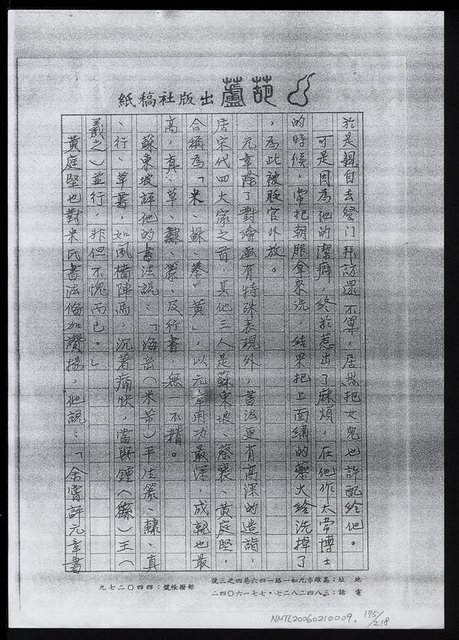 葫蘆出版社稿紙
於是親自去登门拜訪還不算，居然把女兒也許配給他。
可是因為他的潔癖，終於惹出了麻煩，在他作太常博士
的時候，常把朝服拿來洗，結果把上面繡的藻火給洗掉了
，為此被貶官外放。
元章除了對繪画有特殊表現外，書法更有高深的造詣，
居宋代四大家之首，其他三人是蘇東坡、蔡襄、黃庭堅，
合稱為「米、蘇、蔡、黃」，以元章用功最深，成就也最
高，真、草、隸、篆、及行書，無一不精。
蘇東坡評他的書法說：「海岳（米芾）平生篆、隸、真
、行、草書，如風檣陣馬，沉著痛快，當與鍾（繇）王（
羲之）並行，非但不愧而已。」
黃庭堅也對米氏書法倍加讚揚，他說：「余嘗評元章書
地址：高雄市九如一路一四六巷四之三號
電話：三八四二八二七．七七一六〇四二
郵撥帳號：四四〇二七九
NMTL20060210009, 175/218